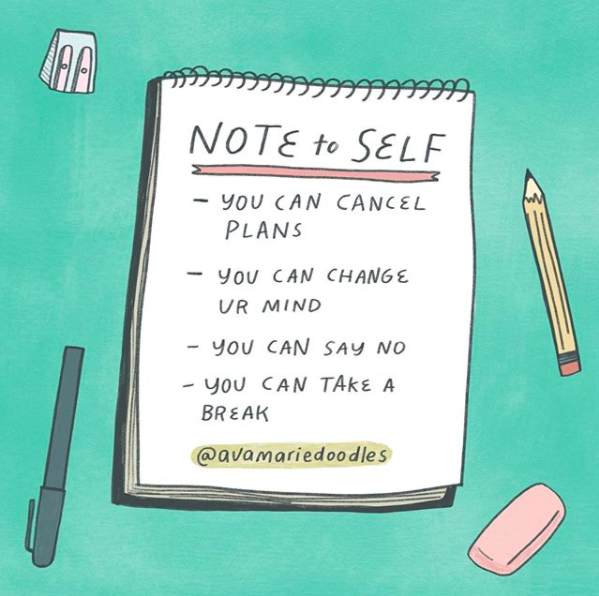 NOTE to SELF
- YOU CAN CANCEL
PLANS
- YOU CAN CHANGE
UR MIND
- YOU CAN SAY NO
- YOU CAN TAKE A
BREAK
@avamariedoodles